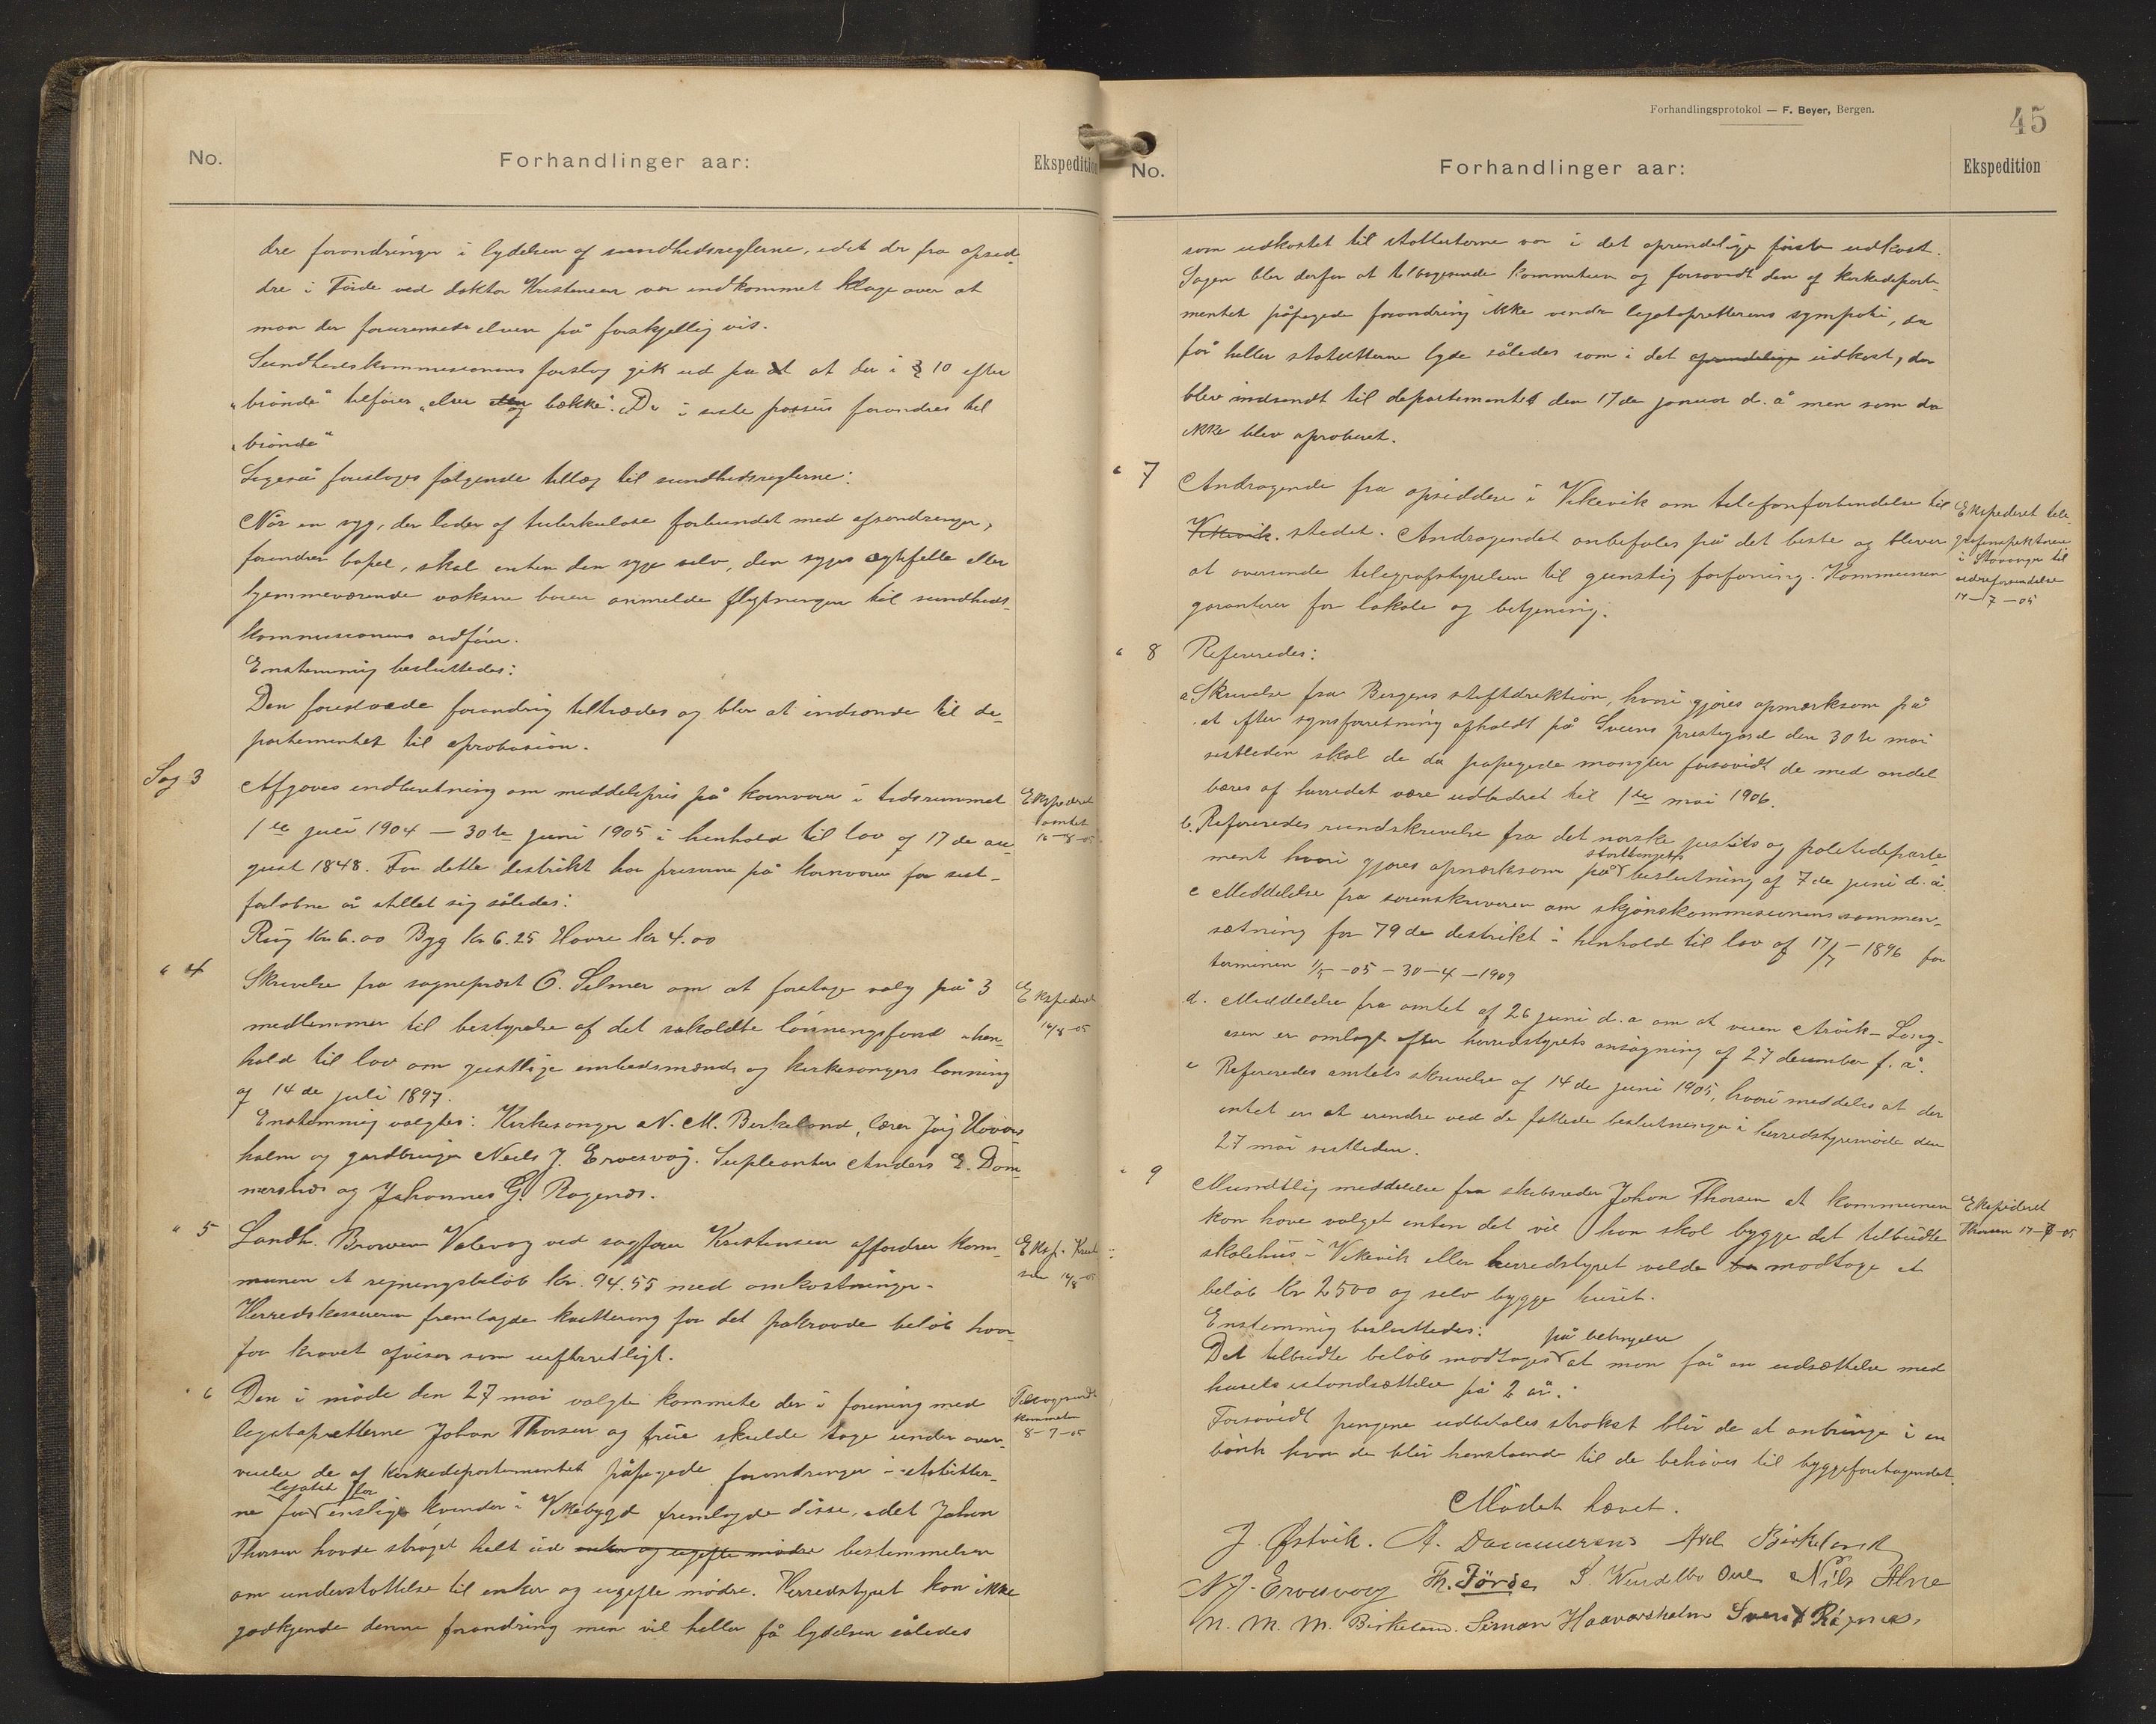 No.
Forhandlinger aar:
Ekspedition
dre forandringer i lydelsen af sundhedsreglerne, idet der fra opsid-
dre i Förde ved doktor Kristensen var indkommet klage over at
man der forurensede elven på forskjellig vis.
Sundhedskommissionens forslag gik ud på at der i § 10 efter
„brönde" tilföies „elver og bække". De i siste passus forandres til
„brönde"
Ligeså foreslages fölgende tillæg til sundhedsreglerne:
Når en syg, der lider af tuberkulose forbundet med afsondringer,
forandrer bopel, skal enten den syge selv, den syges ægtefelle eller
hjemmeværende voksne barn anmelde flytningen til sundheds-
kommissionens ordförer.
Enstemmig besluttedes:
Den foreslåede forandring tiltrædes og blir at indsende til de-
partementet til aprobasion.
Sag 3
Afgaves indberetning om middelpris på kornvarer i tidsrummet
1ste juli 1904 — 30te juni 1905 i henhold til lov af 17de au-
gust 1848. For dette distrikt har priserne på kornvarer for sist-
forløbne år stillet sig således:
Rug Kr 6.00 Byg Kr 6.25 Havre kr 4.00
Ekspederet
amtet
16-8-05
" 4
Skrivelse fra sogneprest O. Selmer om at foretage valg på 3
medlemmer til bestyrelse af det såkaldte lönningsfond i hen-
hold til lov om geistlige embedsmænds og kirkesangers lönning
af 14de juli 1897.
Enstemmig valgtes: Kirkesanger N. M. Birkeland, lærer Jörg Håvars-
holm og gardbruger Neels J. Ervesvåg. Supleanter Anders E. Dom-
mersnes og Johannes G. Røgenes.
Ekspederet
16/8-05
" 5
Landh. Brown Valevåg ved sagförer Kristensen affordrer kom-
munen et regningsbelöb kr. 94.55 med omkostninger.
Herredskassereren fremlagde kvittering for det påkravde belöb hvor-
for kravet afvises som uefterretligt.
Eksp. Krist-
sen 16/8-05
" 6
Den i möde den 27 mai valgte kommite der i forening med
legatopretterne Johan Thorsen og frue skulde tage under over-
veielse de af kirkedepartementet påpegede forandringer i statutter-
legatet for
ne for enslige kvinder i Vikebygd fremlagde disse, idet Johan
Thorsen havde strøget helt ud enker og ugifte mödre bestemmelsen
om understøttelse til enker og ugifte mödre. Herredstyret kan ikke
godkjende denne forandring men vil heller få lydelsen således
Tilbagesendt
kommiteen
8-7-05
Forhandlingsprotokol — F. Beyer, Bergen.
45
No.
Forhandlinger aar:
Ekspedition
som udkastet til statutterne var i det oprindelige første udkast.
Sagen blir derfor at tilbagesende kommiteen og forsåvidt den af kirkedeparte-
mentet påpegede forandring ikke vinder legatopretterens sympati, da
får heller statutterne lyde således som i det oprindelige udkast, der
blev indsendt til departementet den 17de januar d. å men som da
ikke blev aproberet.
" 7
Andragende fra opsiddere i Vikevik om telefonforbindelse til
Vikevik. stedet. Andragendet anbefales på det beste og bliver
at oversende telegrafstyrelsen til gunstig forføining. Kommunen
garanterer for lokale og betjening.
Ekspederet tele-
grafinspektøren
i Stavanger til
videreforsendelse
14-7-05
" 8
Refereredes:
a. Skrivelse fra Bergens stiftdirektion, hvori gjöres opmærksom på
at efter synsforretning afholdt på Sveens prestegård den 30te mai
sistleden skal de da påpegede mangler forsåvidt de med andel
bæres af herredet være udbedret til 1ste mai 1906.
b. Refereredes rundskrivelse fra det norske justits og politideparte-
stortingets
ment hvori gjöres opmærksom på beslutning af 7de juni d. å.
c Meddelelse fra sorenskriveren om skjönskommissionens sammen-
sætning for 79de distrikt i henhold til lov af 17/7-1896 for
terminen 1/5-05-30-4-1909
d. Meddelelse fra amtet af 26 juni d. a om at veien Arvik-Lang-
esen er omlagt efter herredstyrets ansögning af 27 december f. å.
e Refereredes amtets skrivelse af 14de juni 1905, hvori meddeles at der
intet er at erindre ved de fattede beslutninger i herredstyremöde den
27 mai sistleden.
" 9
Mundtlig meddelelse fra skibsreder Johan Thorsen at kommunen
kan have valget enten det vil han skal bygge det tilbudte
skolehus i Vikevik eller herredstyret vilde modtage et
belöb Kr 2500 og selv bygge huset.
Enstemmig besluttedes:
på betingelse
Det tilbudte belöb modtages at man får en udsættelse med
husets istandsættelse på 2 år.
Forsåvidt pengene udbetales strakst blir de at anbringe i en
bank hvor de blir henstående til de behöves til byggeforetagendet.
Ekspederet
Thorsen 17-8-05
Mödet hævet.
J. Østvik. A. Dammersnes Axel Birkeland
N. J. Ervesvaag Th. Förde S. Wendelbo Ove Nils Alne
N. M. M. Birkeland. Simon Haavarsholm Svend Rögnes.